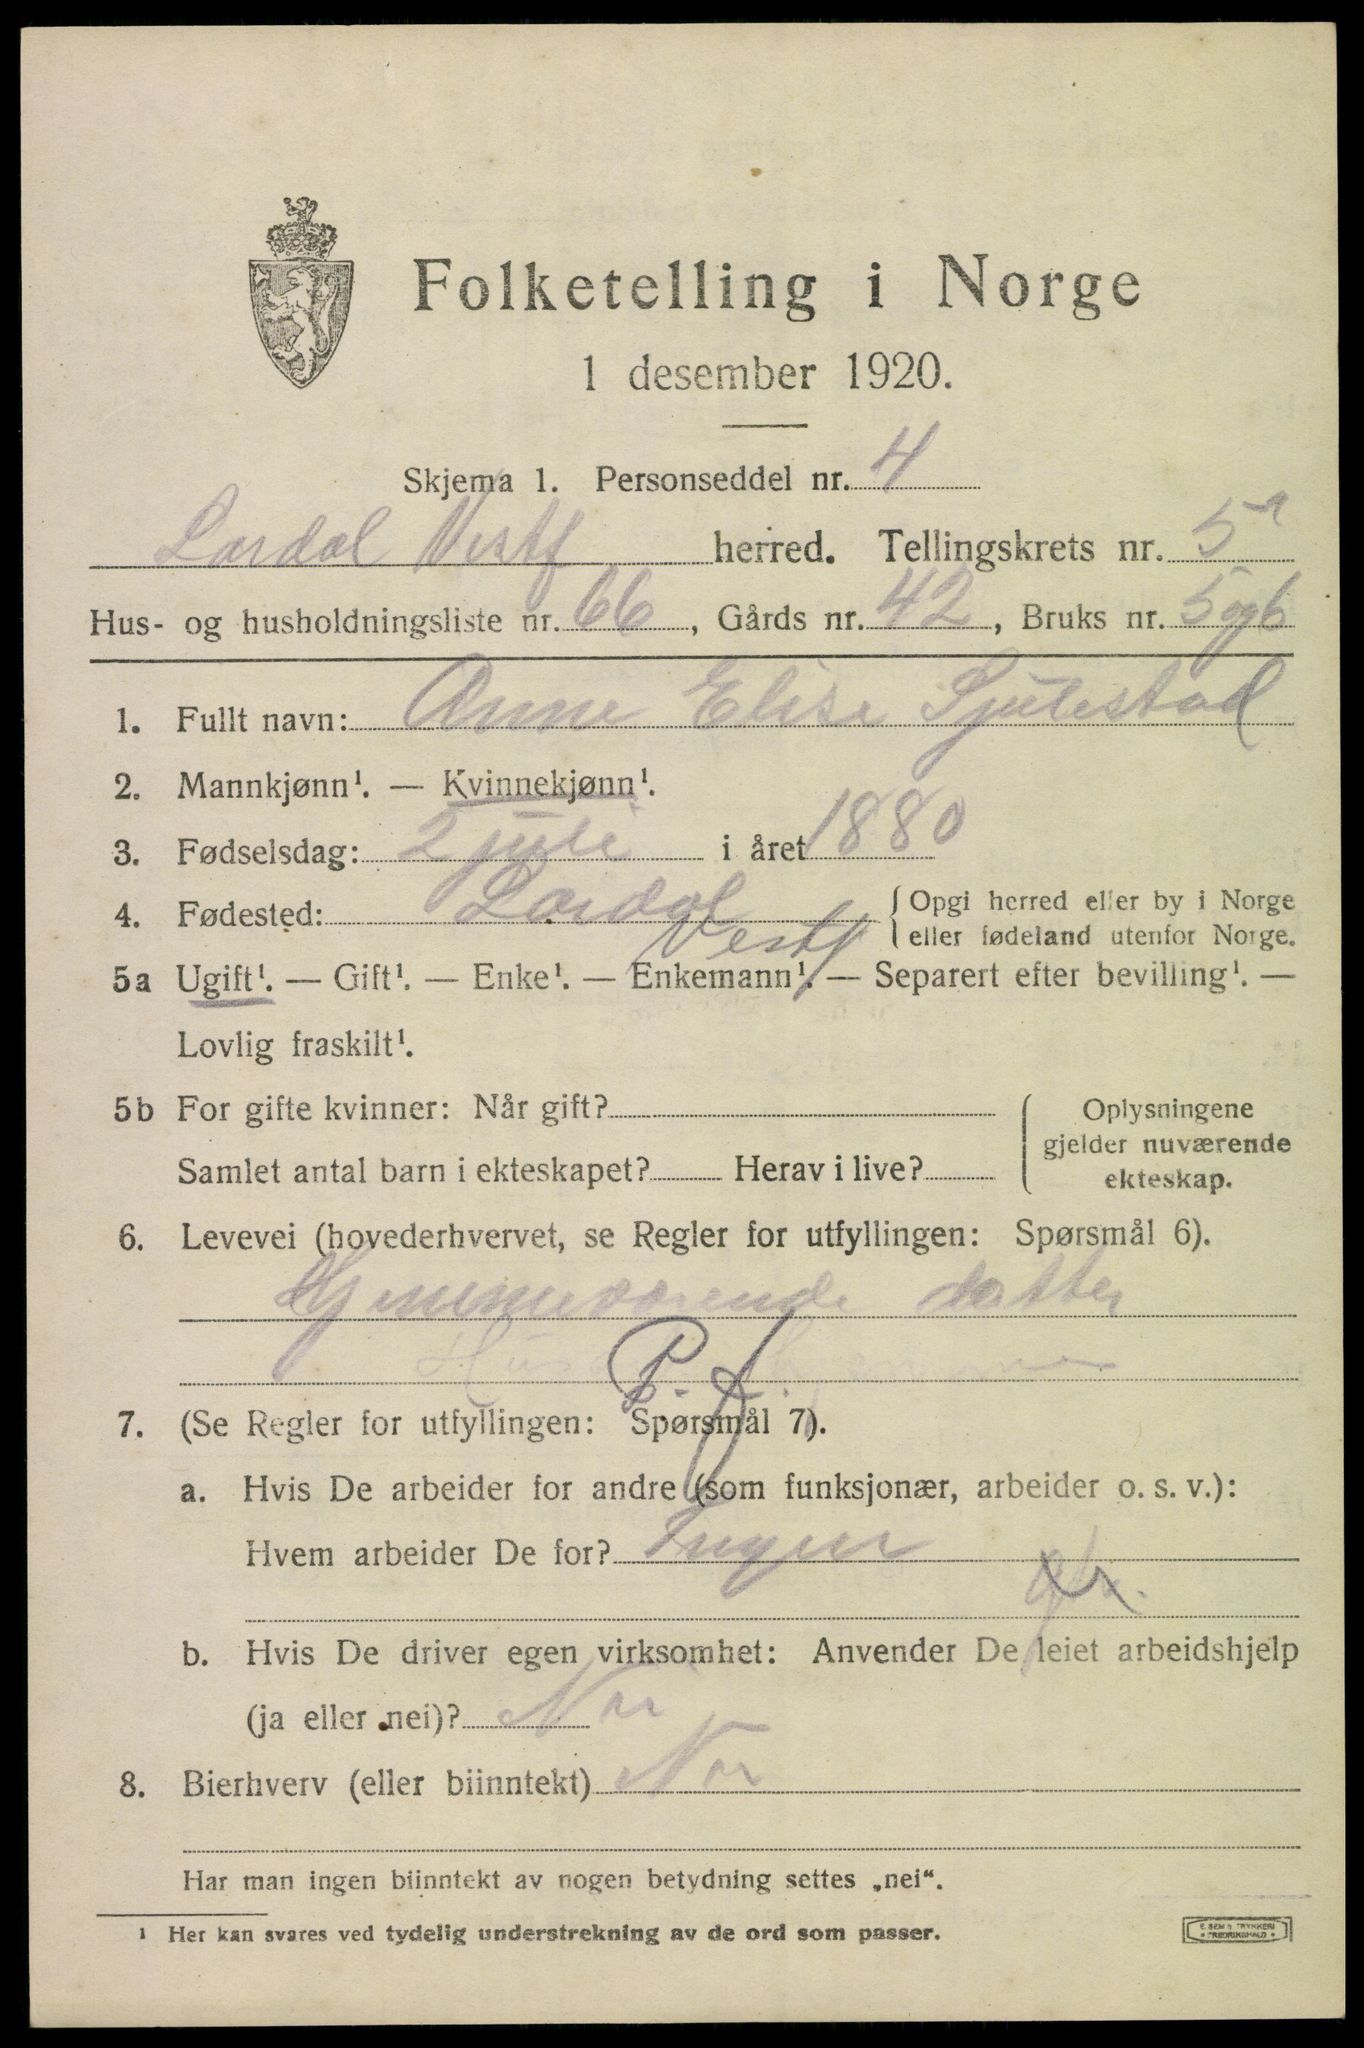 Folketelling i Norge
1 desember 1920.
Skjema 1. Personseddel nr. 4
Lardal Vestf herred. Tellingskrets nr. 5
Hus- og husholdningsliste nr. 66, Gårds nr. 42, Bruks nr. 5 og 6
1. Fullt navn: Anne Elise Sjulestad
2. Mannkjønn¹. — Kvinnekjønn¹.
3. Fødselsdag: 2 juli i året 1880
4. Fødested: Lardal Vestf
{ Opgi herred eller by i Norge
eller fødeland utenfor Norge.
5a Ugift¹. — Gift¹. — Enke¹. — Enkemann¹. — Separert efter bevilling¹. —
Lovlig fraskilt¹.
5b For gifte kvinner: Når gift?
Samlet antal barn i ekteskapet? Herav i live?
{ Oplysningene
gjelder nuværende
ekteskap.
6. Levevei (hovederhvervet, se Regler for utfyllingen: Spørsmål 6).
Hjemmeværende datter
7. (Se Regler for utfyllingen: Spørsmål 7).
a. Hvis De arbeider for andre (som funksjonær, arbeider o. s. v.):
Hvem arbeider De for? Ingen
b. Hvis De driver egen virksomhet: Anvender De leiet arbeidshjelp
(ja eller nei)? Nei
8. Bierhverv (eller biinntekt) Nei
Har man ingen biinntekt av nogen betydning settes „nei“.
¹ Her kan svares ved tydelig understrekning av de ord som passer.
E. SEM'S TRYKKERI
FREDRIKSHALD